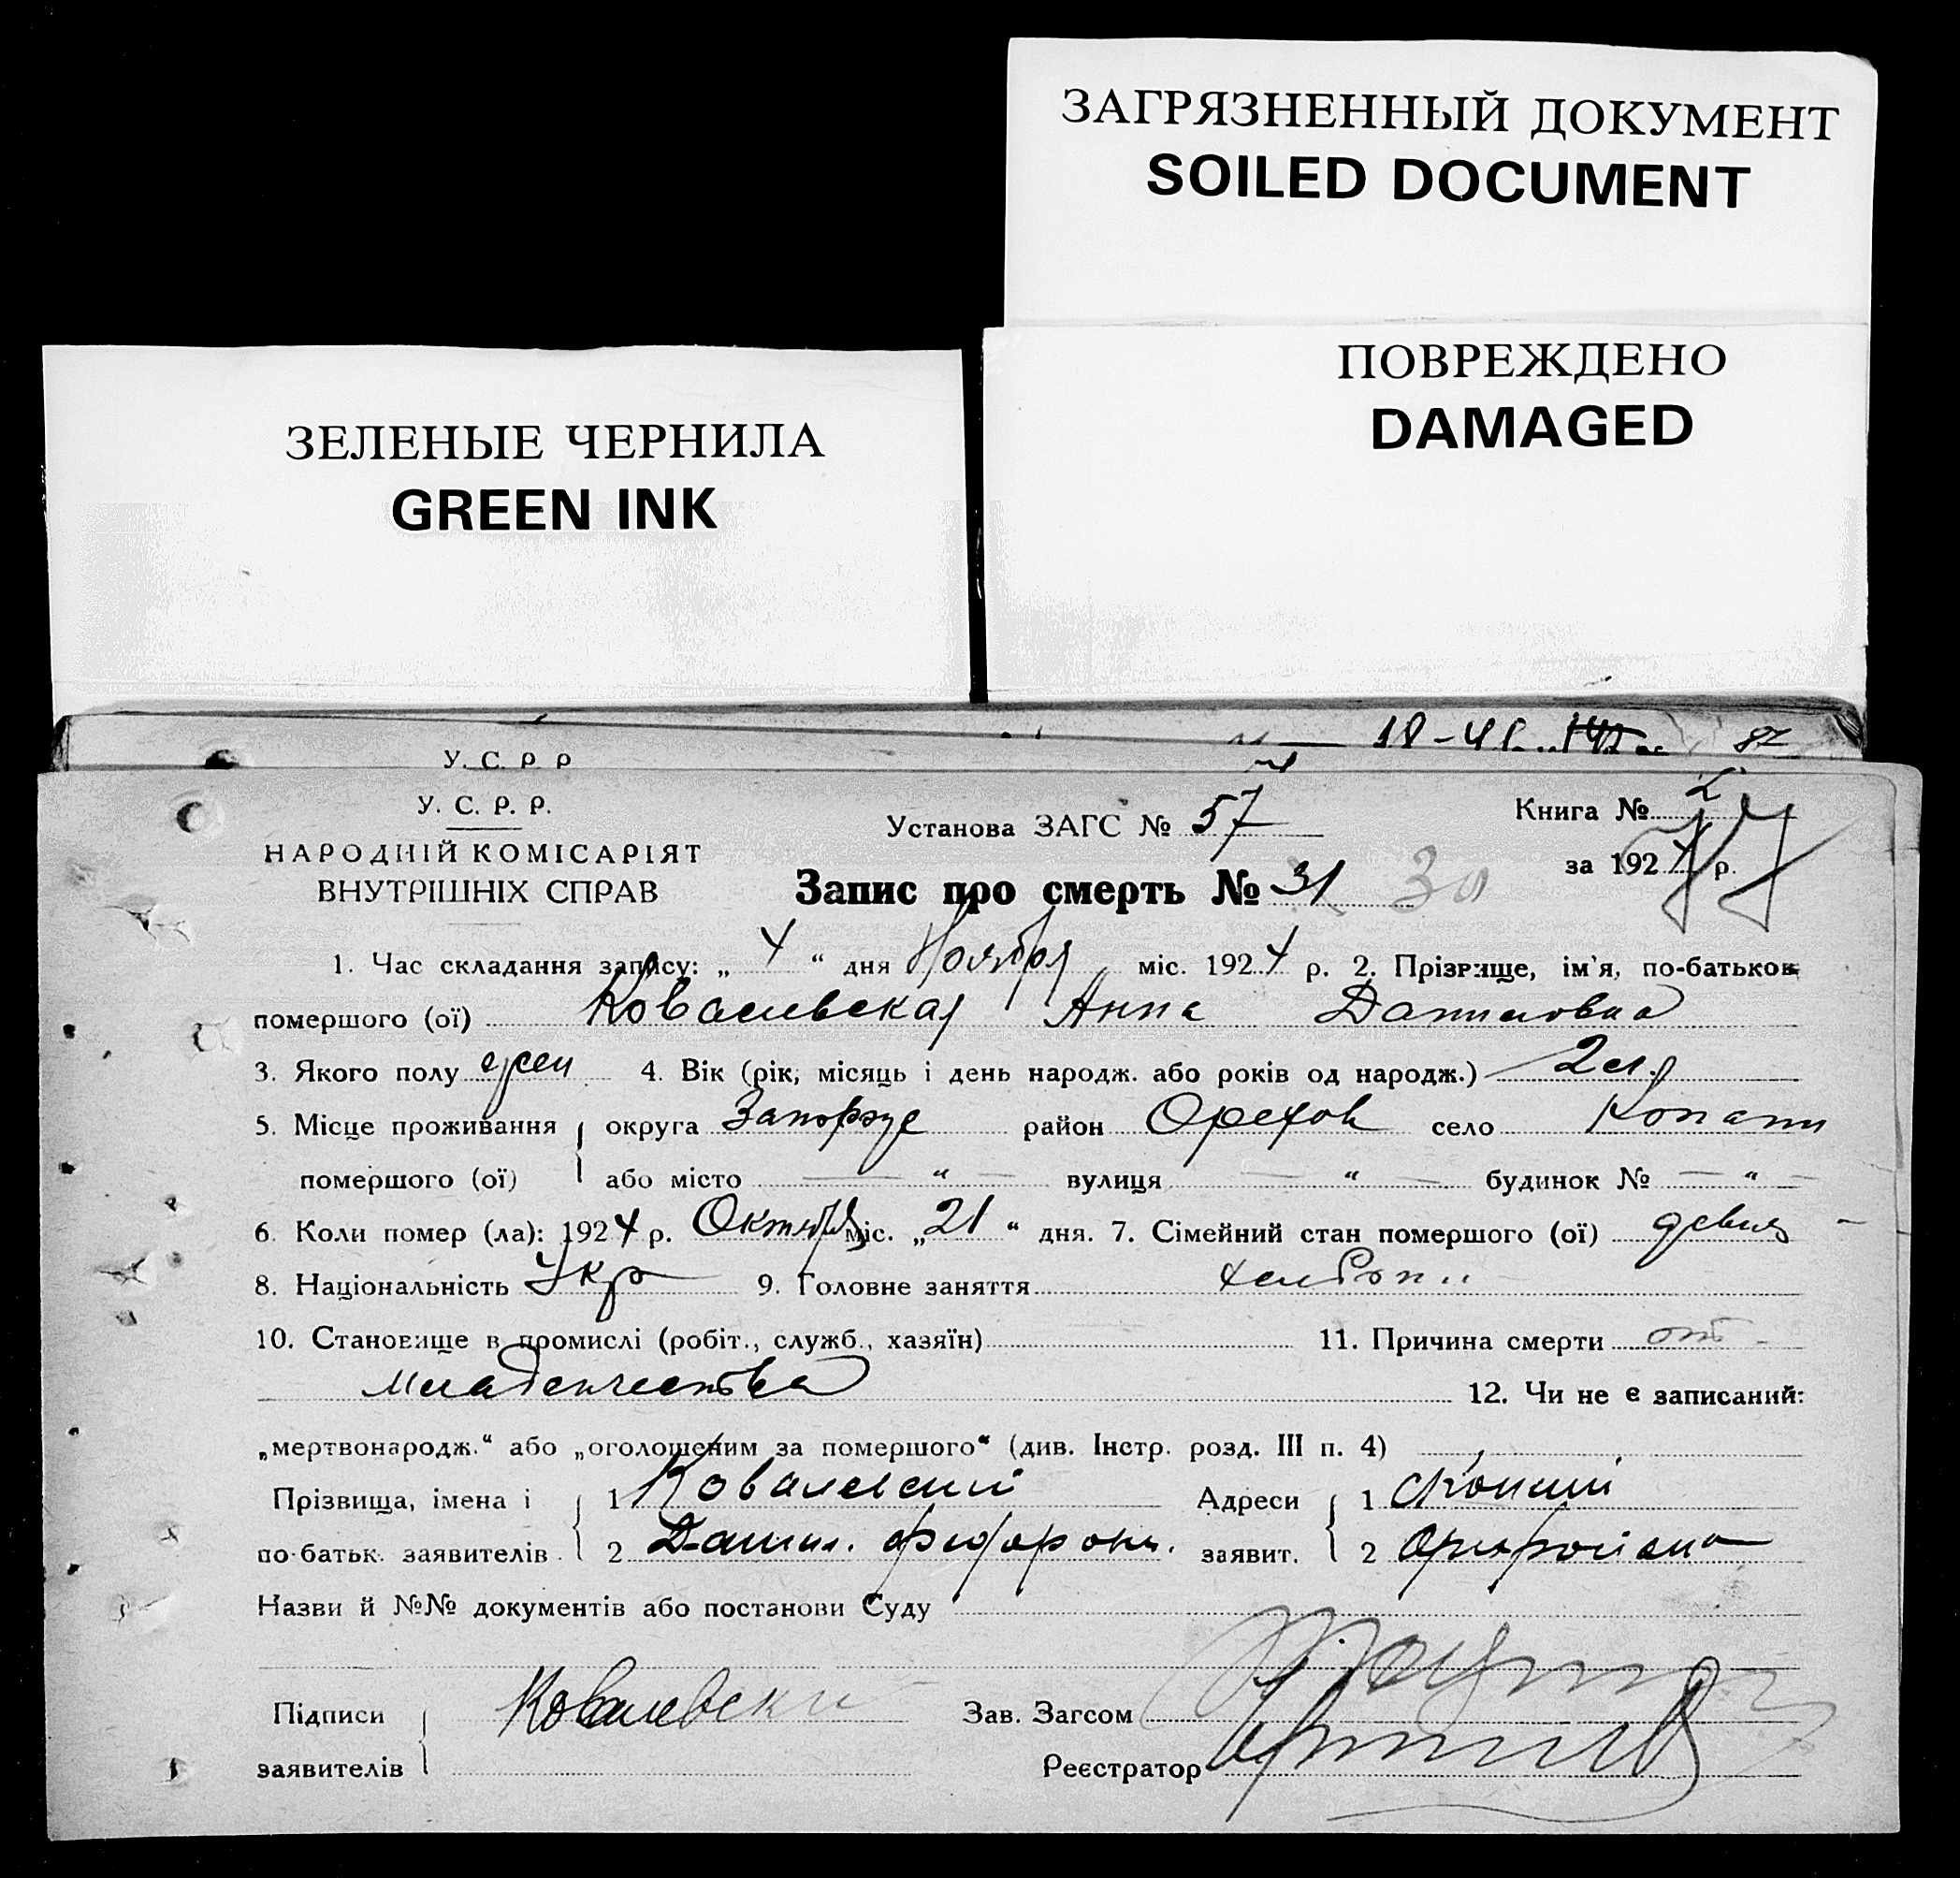 ЗАГРЯЗНЕННЫЙ ДОКУМЕНТ
SOILED DOCUMENT
ПОВРЕЖДЕНО
DAMAGED
ЗЕЛЕНЫЕ ЧЕРНИЛА
GREEN INK
У. С. Р. Р.
У. С. Р. Р. Установа ЗАГС № 57 Книга № 2
НАРОДНІЙ КОМІСАРІЯТ за 1924 р.
ВНУТРІШНІХ СПРАВ Запис про смерть № 31 30
1. Час складання запису: „ 4 “ дня Ноября міс. 1924 р. 2. Прізвище, ім'я, по-батьков
помершого (ої) Ковалевская Анна Даниловна
3. Якого полу жен 4. Вік (рік, місяць і день народж. або років од народж.) 2
5. Місце проживання округа Запорож район Орехов село Копани
помершого (ої) або місто — “ — вулиця — “ — будинок № — “ —
6. Коли помер (ла): 1924 р. Октября міс. „ 21 “ дня. 7. Сімейний стан помершого (ої) девица
8. Національність Укр 9. Головне заняття
10. Становище в промислі (робіт., служб., хазяїн) 11. Причина смерти от
младенчества 12. Чи не є записаний:
„мертвонародж.“ або „оголошеним за помершого“ (див. Інстр. розд. III п. 4)
Прізвища, імена і 1 Ковалевский Адреси 1 с Копани
по-батьк. заявителів 2 Данил. Федоров. заявит. 2 Орех района
Назви й №№ документів або постанови Суду
Підписи Ковалевски Зав. Загсом
заявителів Реєстратор